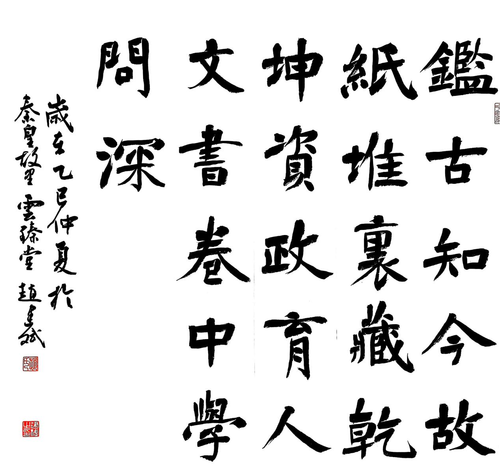 鑑古知今故
紙堆裏藏乾
坤資政育人
文書卷中學
問深
歲在乙巳仲夏於
秦皇故里雲臻堂趙